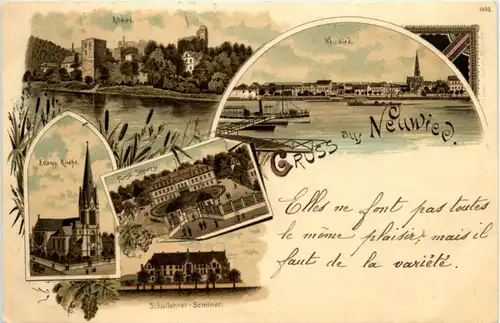 1693.
Altwied.
Neuwied.
Gruss aus Neuwied.
Evang. Kirche.
Fürstl. Schloss.
Elles ne font pas toutes
le même plaisir, mais il
faut de la variété.
Schullehrer-Seminar.